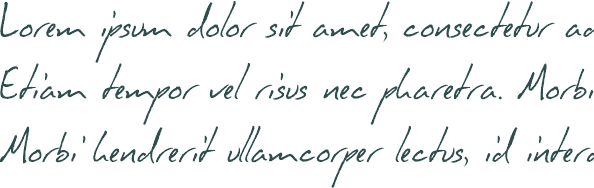 Lorem ipsum dolor sit amet, consectetur ad
Etiam tempor vel risus nec pharetra. Morbi
Morbi hendrerit ullamcorper lectus, id interd